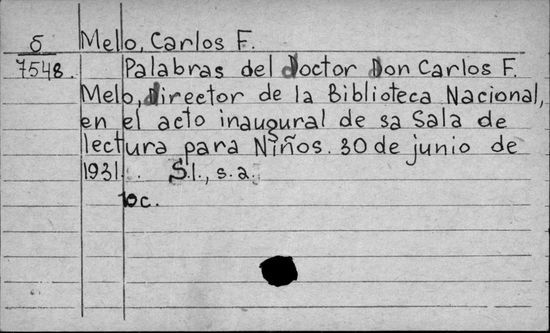 6 Mello, Carlos F.
7548. Palabras del Doctor Don Carlos F.
Melo, Director de la Biblioteca Nacional,
en el acto inaugural de sa Sala de
lectura para Niños. 30 de junio de
1931. S.l., s.a.
bc.